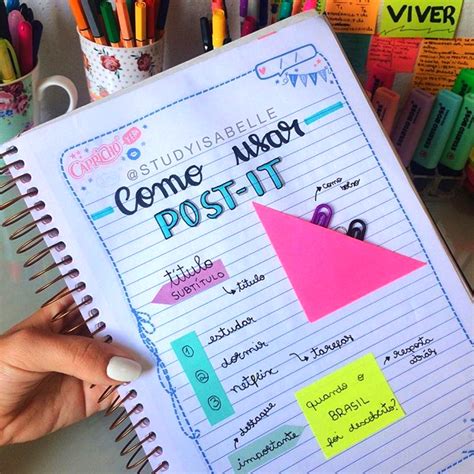 VIVER
CAPRICHO
@STUDYISABELLE
como usar
POST-IT
como bolso
título
SUBTÍTULO
título
1 estudar
2 dormir
3 netflix
tarefas
destaque
importante
resposta
atrás
quando o
BRASIL
foi descoberto?